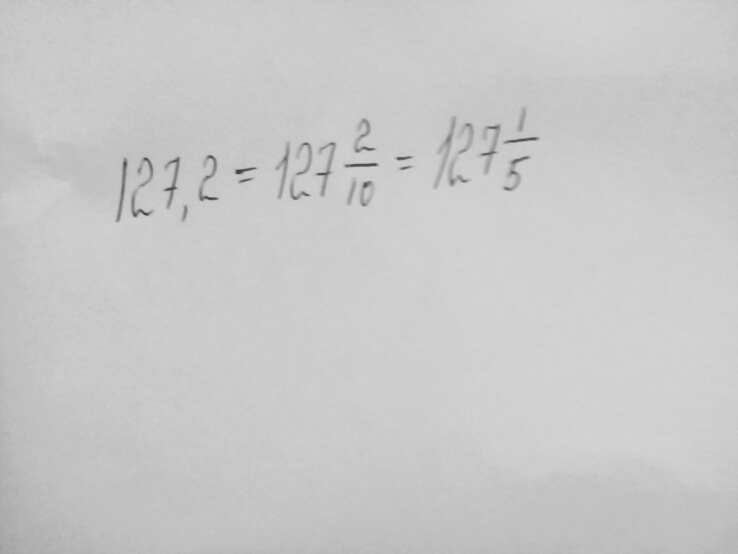 127,2 = 127 2/10 = 127 1/5